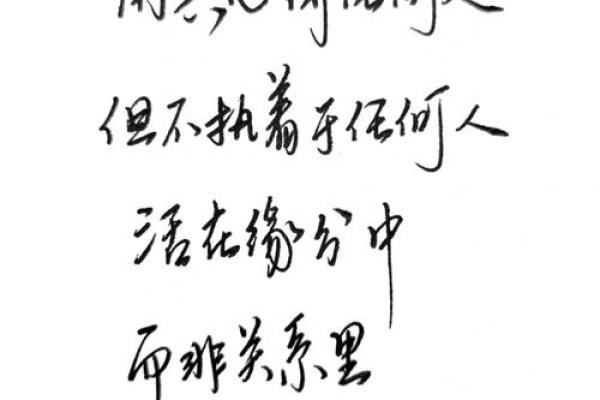 但不执着于任何人
活在缘分中
而非关系里